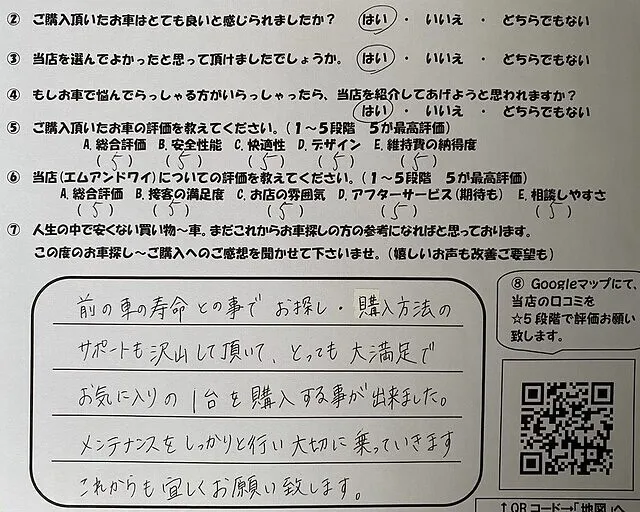 ② ご購入頂いたお車はとても良いと感じられましたか? はい ・ いいえ ・ どちらでもない
③ 当店を選んでよかったと思って頂けましたでしょうか。 はい ・ いいえ ・ どちらでもない
④ もしお車で悩んでらっしゃる方がいらっしゃったら、当店を紹介してあげようと思われますか?
はい ・ いいえ ・ どちらでもない
⑤ ご購入頂いたお車の評価を教えてください。(1～5段階 5が最高評価)
A.総合評価 B.安全性能 C.快適性 D.デザイン E.維持費の納得度
(5) (5) (5) (5) (5)
⑥ 当店(エムアンドワイ)についての評価を教えてください。(1～5段階 5が最高評価)
A.総合評価 B.接客の満足度 C.お店の雰囲気 D.アフターサービス(期待も) E.相談しやすさ
(5) (5) (5) (5) (5)
⑦ 人生の中で安くない買い物～車。まだこれからお車探しの方の参考になればと思っております。
この度のお車探し～ご購入へのご感想を聞かせて下さいませ。(嬉しいお声も改善ご要望も)
前の車の寿命との事でお探し・購入方法の
サポートも沢山して頂いて、とっても大満足で
お気に入りの1台を購入する事が出来ました。
メンテナンスをしっかりと行い大切に乗っていきます
これからも宜しくお願い致します。
⑧ Googleマップにて、
当店の口コミを
☆5段階で評価お願い
致します。
↑QRコード→「地図」へ